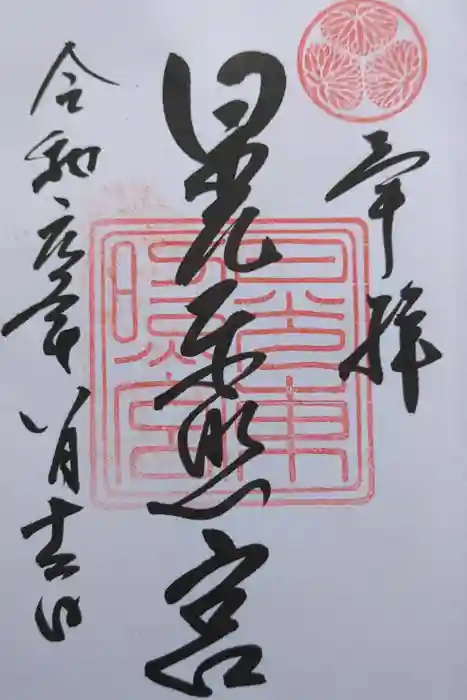 奉拝
日光東照宮
日光東
照宮
令和元年八月十日